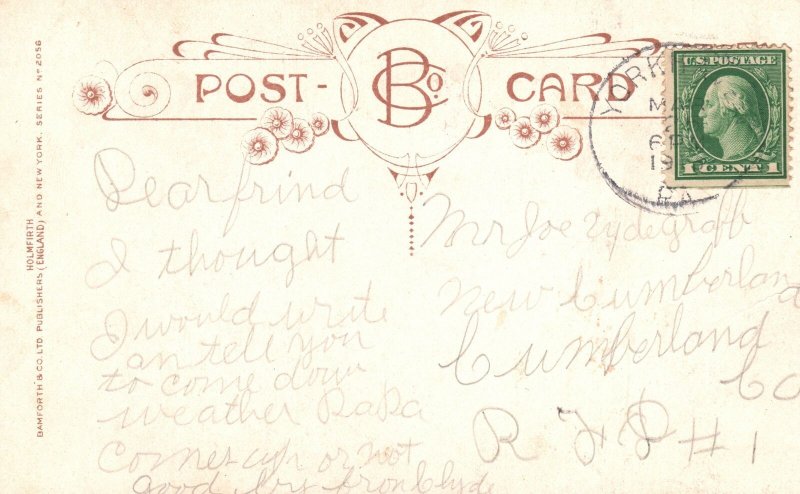 POST- BCo. CARD
U.S. POSTAGE
1 CENT 1
YORK
MA
6 P
19
PA
Dear frind
I thought
I would write
an tell you
to come down
weather PaPa
Comes up or not
good by from Clyde
Mr Joe Zydegraff
New Cumberland
Cumberland
Co
R F D # 1
HOLMFIRTH
BAMFORTH & CO. LTD. PUBLISHERS (ENGLAND) AND NEW YORK. SERIES No 2056